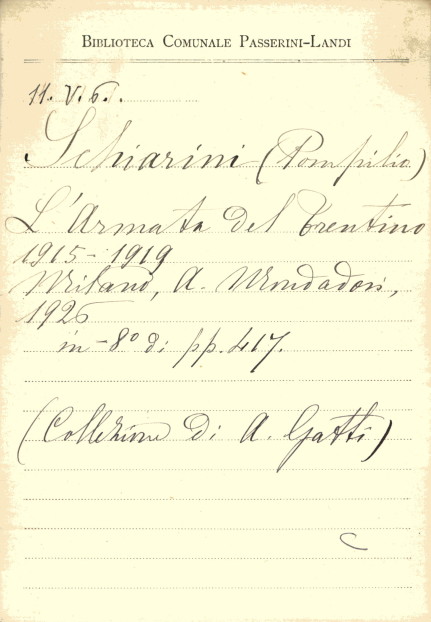 BIBLIOTECA COMUNALE PASSERINI-LANDI
11. V. 6.
Schiarini (Pompilio)
L'Armata del Trentino
1915-1919
Milano, A. Mondadori,
1926
in-8º di pp. 417.
(Collezione di A. Gatti)
C